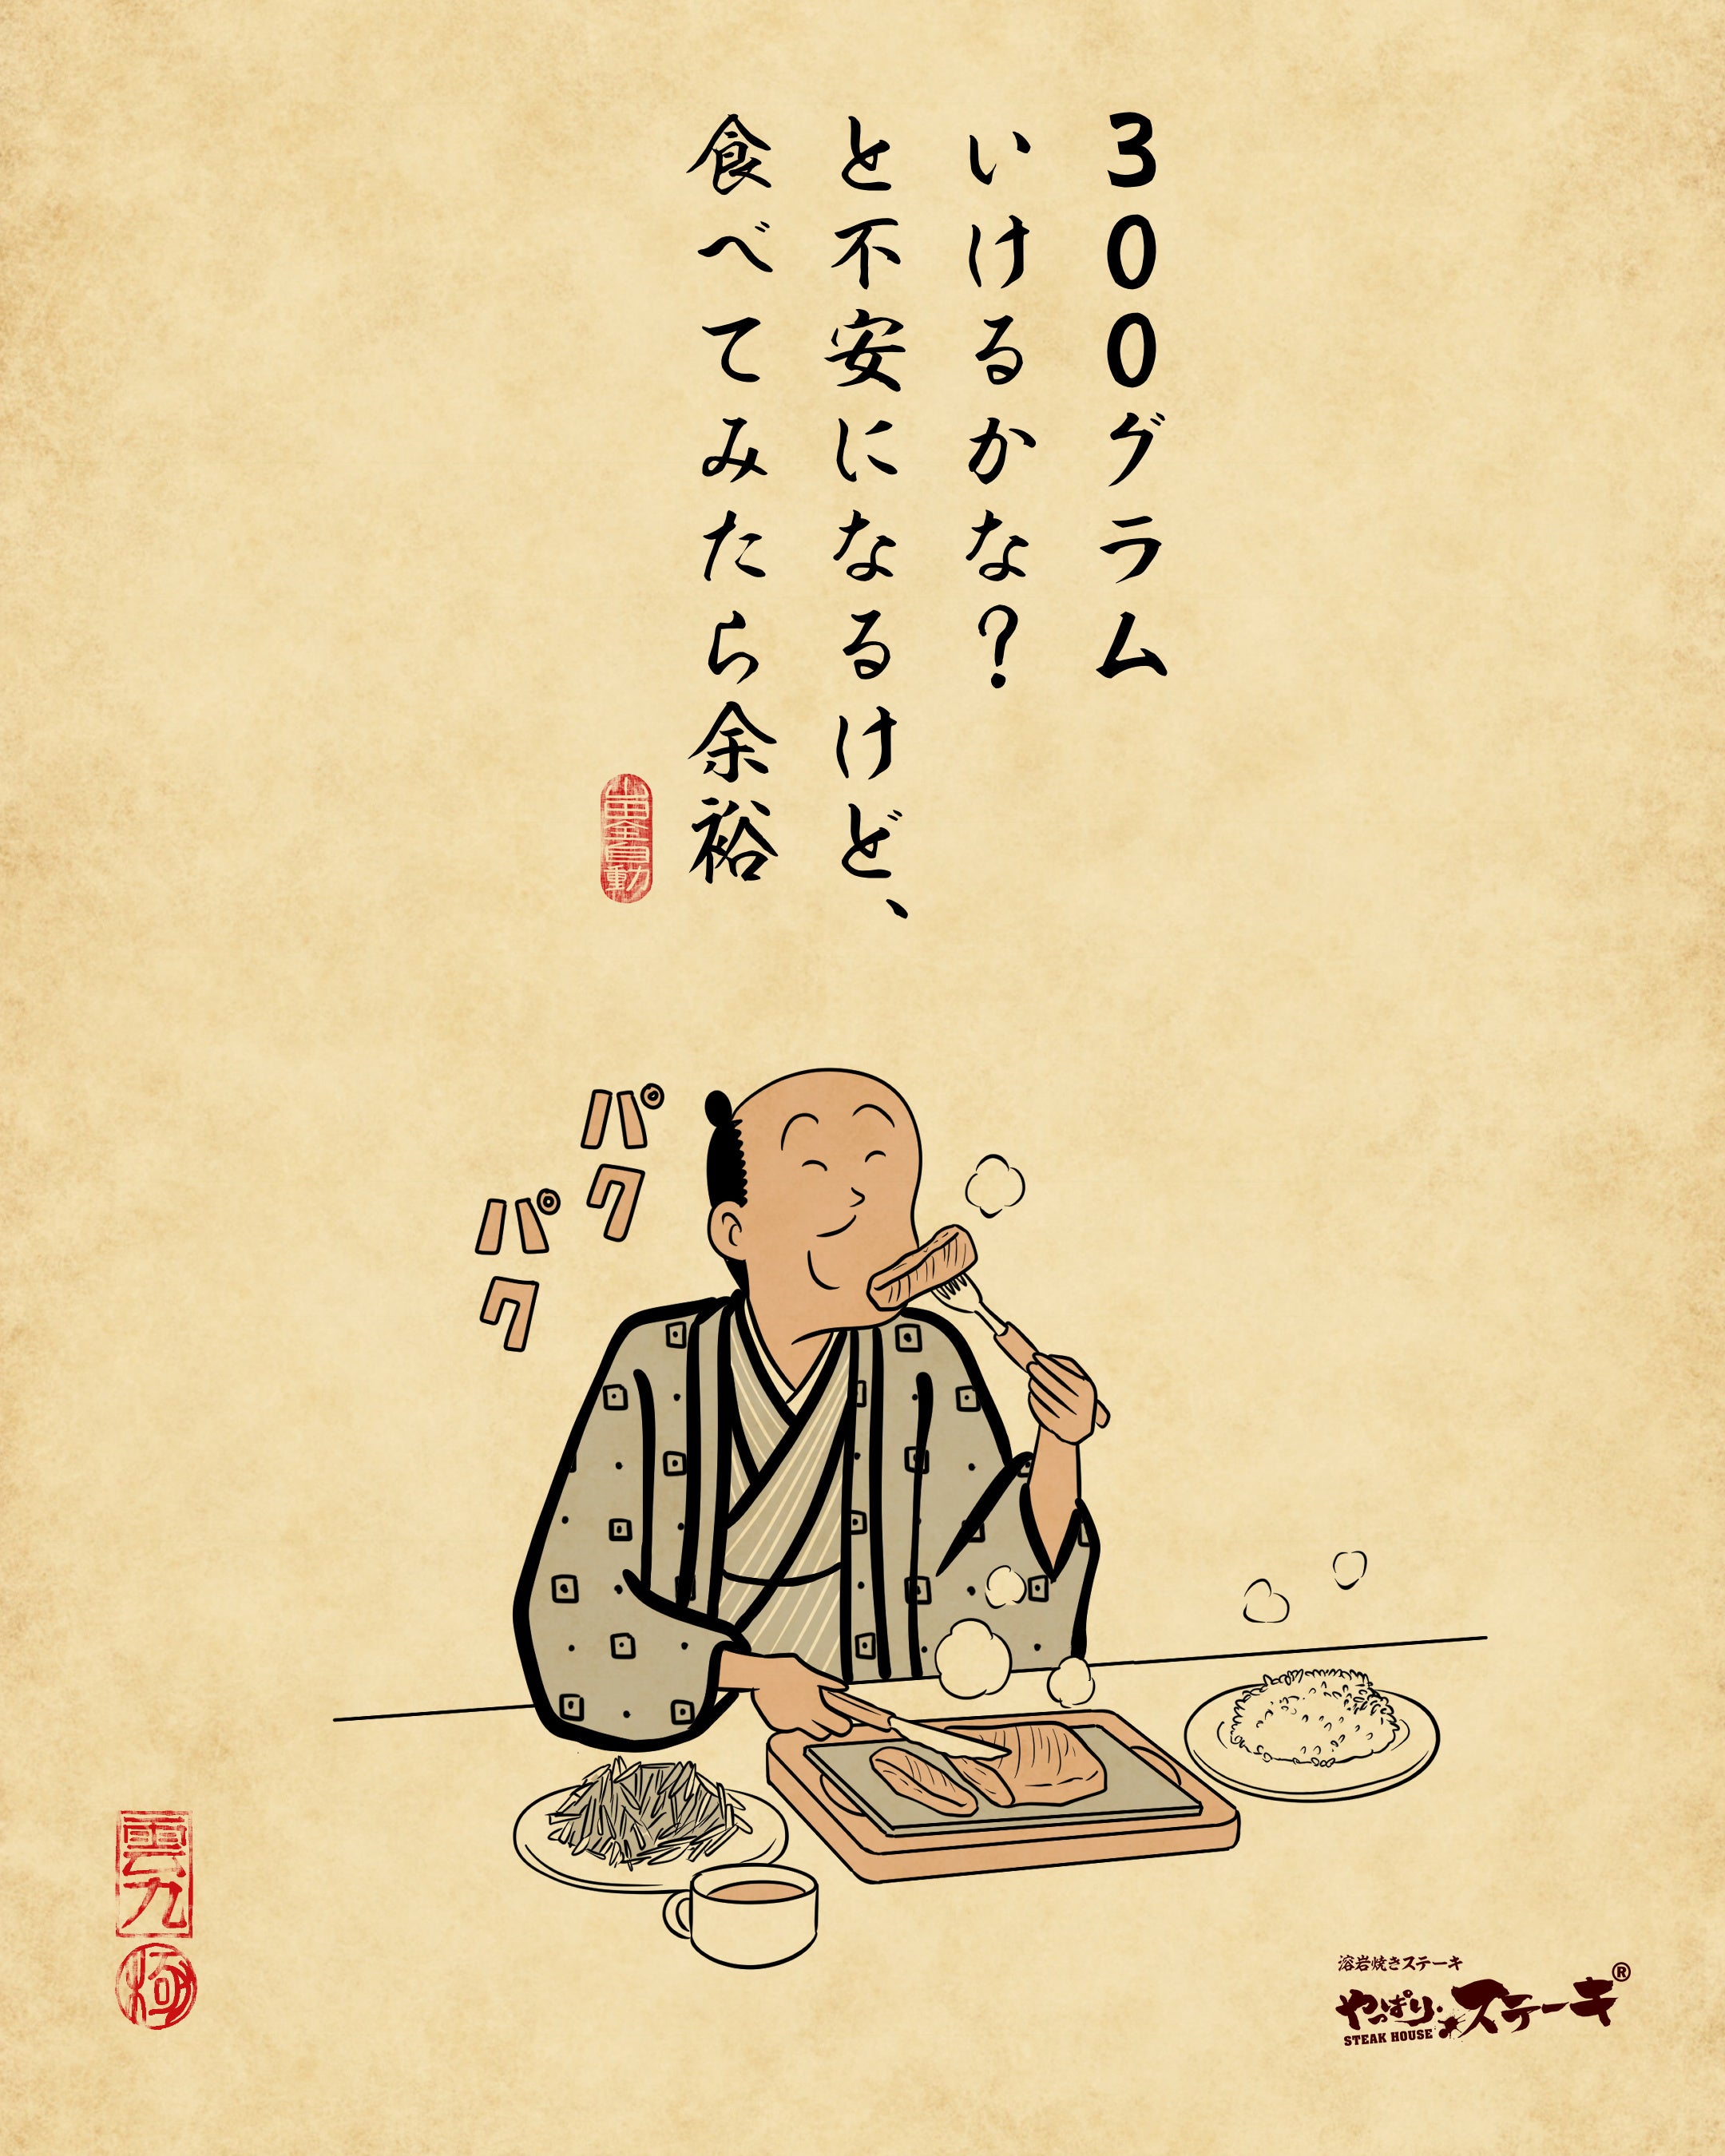 300グラム
いけるかな?
と不安になるけど、
食べてみたら余裕
山田全自動
パク
パク
雲九
極
溶岩焼きステーキ
やっぱりステーキ®
STEAK HOUSE